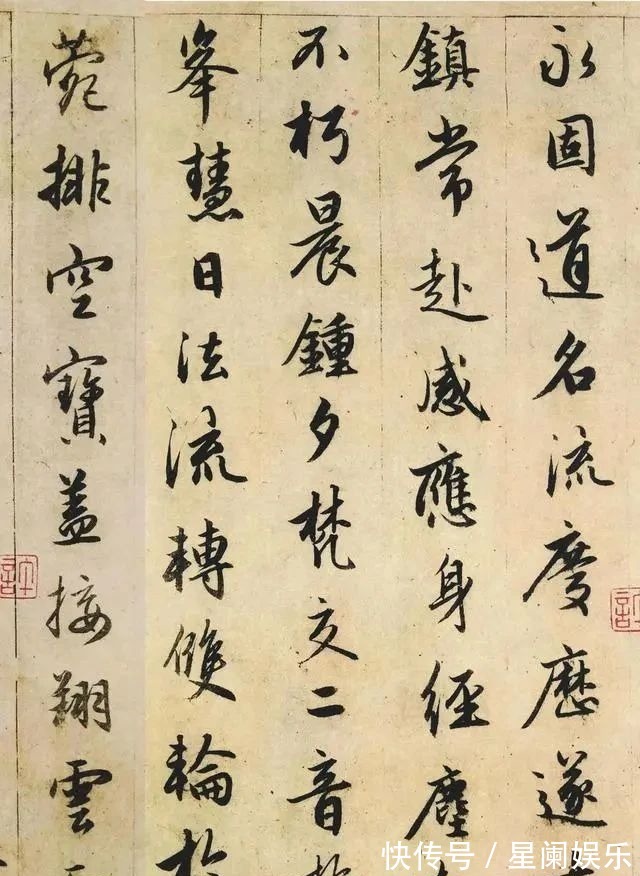 永固道名流慶歷遂
鎮常赴感應身經塵
不朽晨鍾夕梵交二音於
峯慧日法流轉雙輪於
菀排空寶蓋接翔雲
快传号 / 星阑娱乐